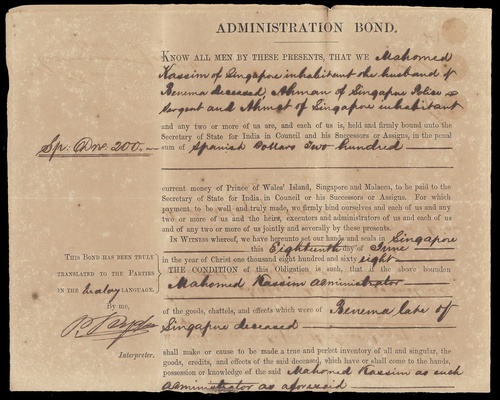 ADMINISTRATION BOND.
KNOW ALL MEN BY THESE PRESENTS, THAT WE Mahomed
Kassim of Singapore inhabitant the husband of
Benema deceased, Ahman of Singapore Police
Sergent and Ahmat of Singapore inhabitant
and any two or more of us are, and each of us is, held and firmly bound unto the
Secretary of State for India in Council and his Successors or Assigns, in the penal
sum of Spanish Dollars Two hundred
Sp. Drs. 200.
current money of Prince of Wales' Island, Singapore and Malacca, to be paid to the
Secretary of State for India in Council or his Successors or Assigns. For which
payment, to be well and truly made, we firmly bind ourselves and each of us and any
two or more of us and the heirs, executors and administrators of us and each of us
and of any two or more of us jointly and severally by these presents.
IN WITNESS whereof, we have hereunto set our hands and seals in Singapore
this Eighteenth day of June
in the year of Christ one thousand eight hundred and sixty eight
THE CONDITION of this Obligation is such, that if the above bounden
Mahomed Kassim administrator
of the goods, chattels, and effects which were of Benema late of
Singapore deceased
shall make or cause to be made a true and perfect inventory of all and singular, the
goods, credits, and effects of the said deceased, which have or shall come to the hands,
possession or knowledge of the said Mahomed Kassim as such
administrator as aforesaid
THIS BOND HAS BEEN TRULY
TRANSLATED TO THE PARTIES
IN THE Malay LANGUAGE.
By me,
Interpreter.